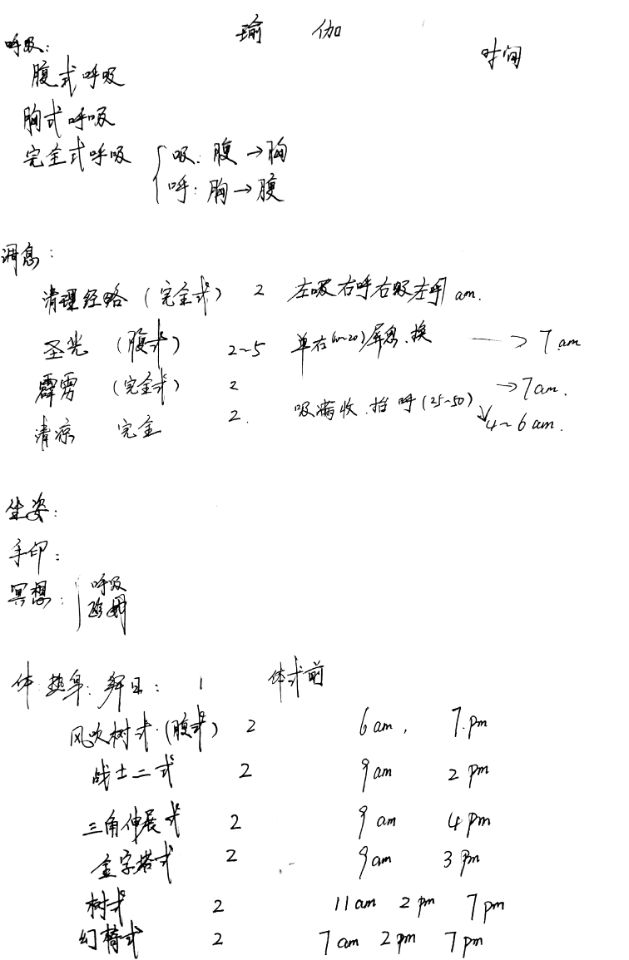 瑜 伽
呼吸: 时间
腹式呼吸
胸式呼吸
完全式呼吸 { 吸: 腹→胸
呼: 胸→腹
调息:
清理经络 (完全式) 2 左吸右呼右吸左呼 am.
圣光 (腹式) 2~5 单右 屏息. 换 → 7am
霹雳 (完全式) 2 → 7am.
清凉 完全 2. 吸满收. 抬 呼 (25~50) ↘ 4~6 am.
坐姿:
手印:
冥想: { 呼吸
体 热身: 拜日: 1 体式前
风吹树式 (腹式) 2 6am, 7.pm
战士二式 2 9am 2pm
三角伸展式 2 9am 4pm
金字塔式 2 9am 3pm
树式 2 11am 2pm 7pm
幻椅式 2 7am 2pm 7pm